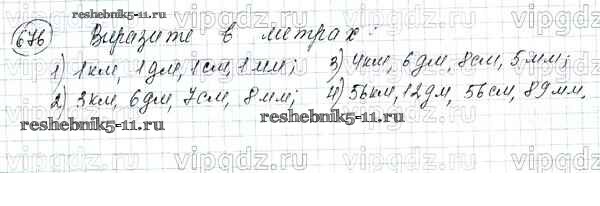 676 Выразите в метрах:
1) 1км, 1дм, 1см, 1мм; 3) 4км, 6дм, 8см, 5мм;
2) 3км, 6дм, 7см, 8мм; 4) 56км, 12дм, 56см, 89мм,
reshebnik5-11.ru
reshebnik5-11.ru reshebnik5-11.ru
vipgdz.ru vipgdz.ru vipgdz.ru
vipgdz.ru vipgdz.ru vipgdz.ru
vipgdz.ru vipgdz.ru vipgdz.ru